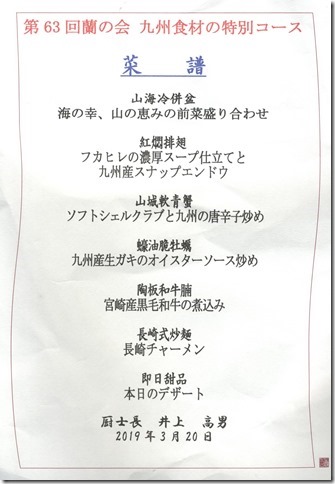 第63回蘭の会 九州食材の特別コース
菜譜
山海冷併盆
海の幸、山の恵みの前菜盛り合わせ
紅燜排翅
フカヒレの濃厚スープ仕立てと
九州産スナップエンドウ
山城軟青蟹
ソフトシェルクラブと九州の唐辛子炒め
蠔油脆牡蠣
九州産生ガキのオイスターソース炒め
陶板和牛腩
宮崎産黒毛和牛の煮込み
長崎式炒麺
長崎チャーメン
即日甜品
本日のデザート
厨士長 井上 高男
2019年3月20日